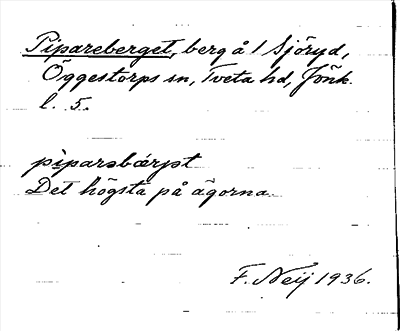 Pipareberget, berg å 1 Sjöryd,
Öggestorps sn, Tveta hd, Jönk.
l. 5.
piparabærjət
Det högsta på ägorna.
F. Neij 1936.